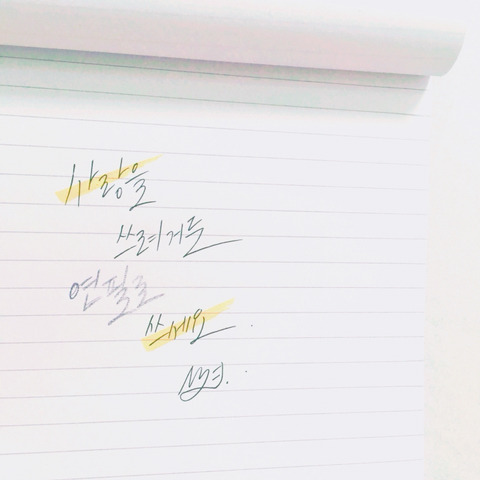 사랑을
쓰려거든
연필로
쓰세요.